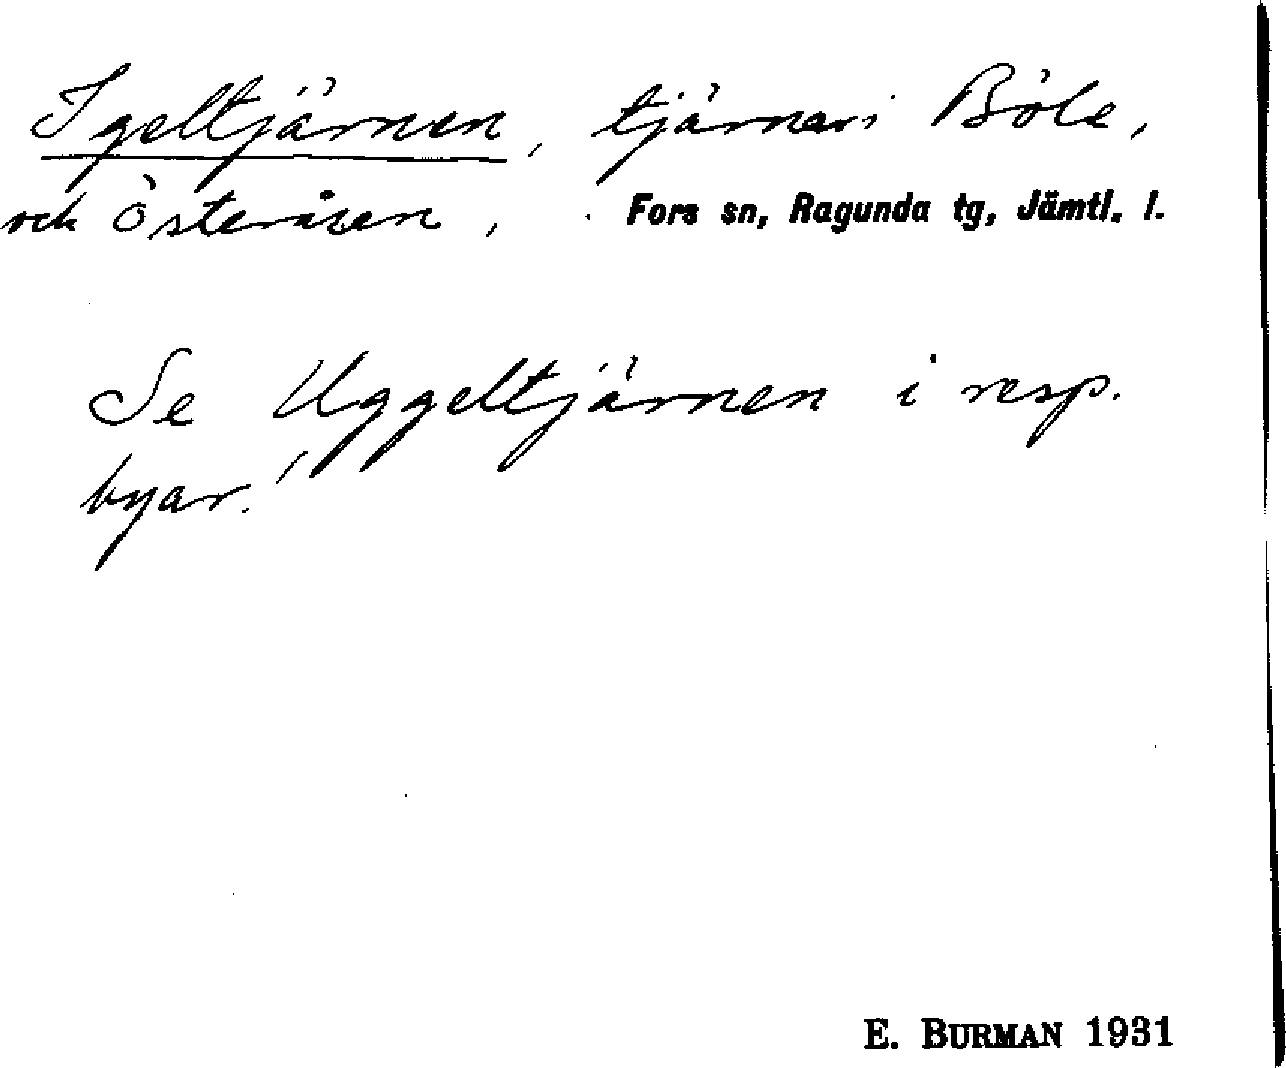 Igeltjärnen, tjärnar i Böle,
och Österåsen, Fors sn, Ragunda tg, Jämtl. l.
Se Uggeltjärnen i resp.
byar!
E. BURMAN 1931